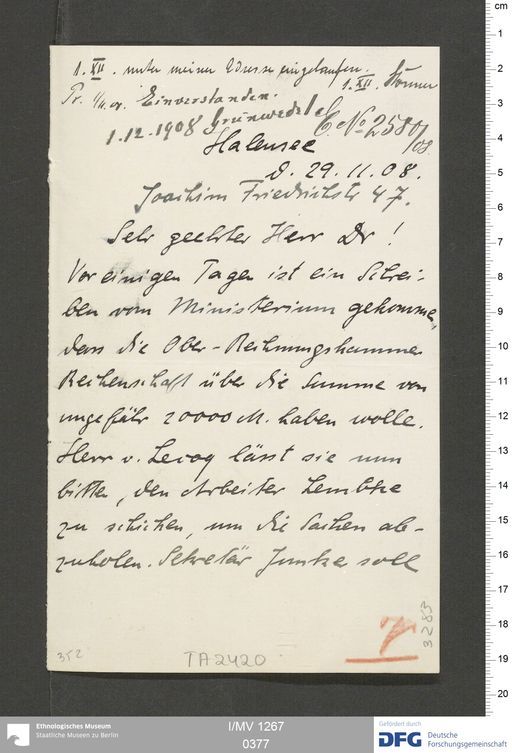 1. XII. unter meiner Adresse eingelaufen.
1. XII.
Pr. Einverstanden.
1.12.1908 Grünwedel
E. No 2580/08
Halensee
d. 29. 11. 08.
Joachim Friedrichstr 47.
Sehr geehrter Herr Dr!
Vor einigen Tagen ist ein Schrei-
ben vom Ministerium gekommen,
dass die Ober-Rechnungskammer
Rechenschaft über die Summe von
ungefähr 20000 M. haben wolle.
Herr v. Lecoq lässt sie nun
bitten, den Arbeiter Lembke
zu schicken, um die Sachen ab-
zuholen. Sekretär Junke soll
3283
352
TA 2420
cm
1
2
3
4
5
6
7
8
9
10
11
12
13
14
15
16
17
18
19
20
Ethnologisches Museum
Staatliche Museen zu Berlin
I/MV 1267
0377
Gefördert durch
DFG Deutsche
Forschungsgemeinschaft